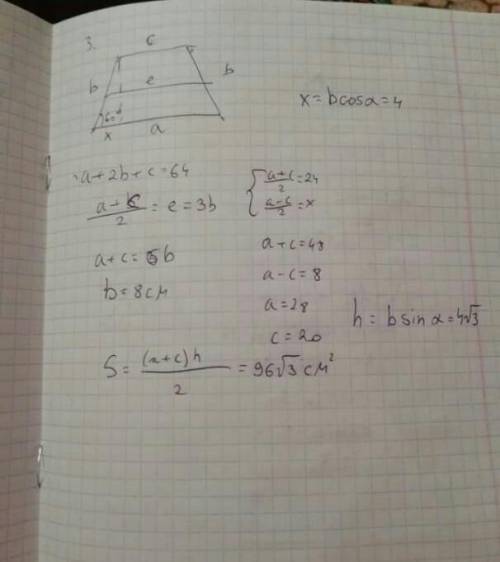 3.
c
b
e
b
60°
x
a
x = b cosα = 4
a + 2b + c = 64
(a + c)/2 = e = 3b
{ (a + c)/2 = 24
(a - c)/2 = x
a + c = 6b
b = 8 см
a + c = 48
a - c = 8
a = 28
c = 20
h = b sin α = 4√3
S = (a + c)h/2 = 96√3 см²